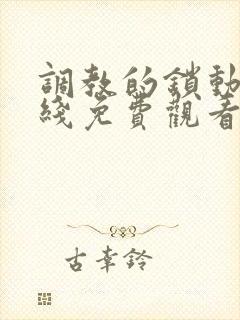 調教的鎖動
綫免費觀看
古幸鈴